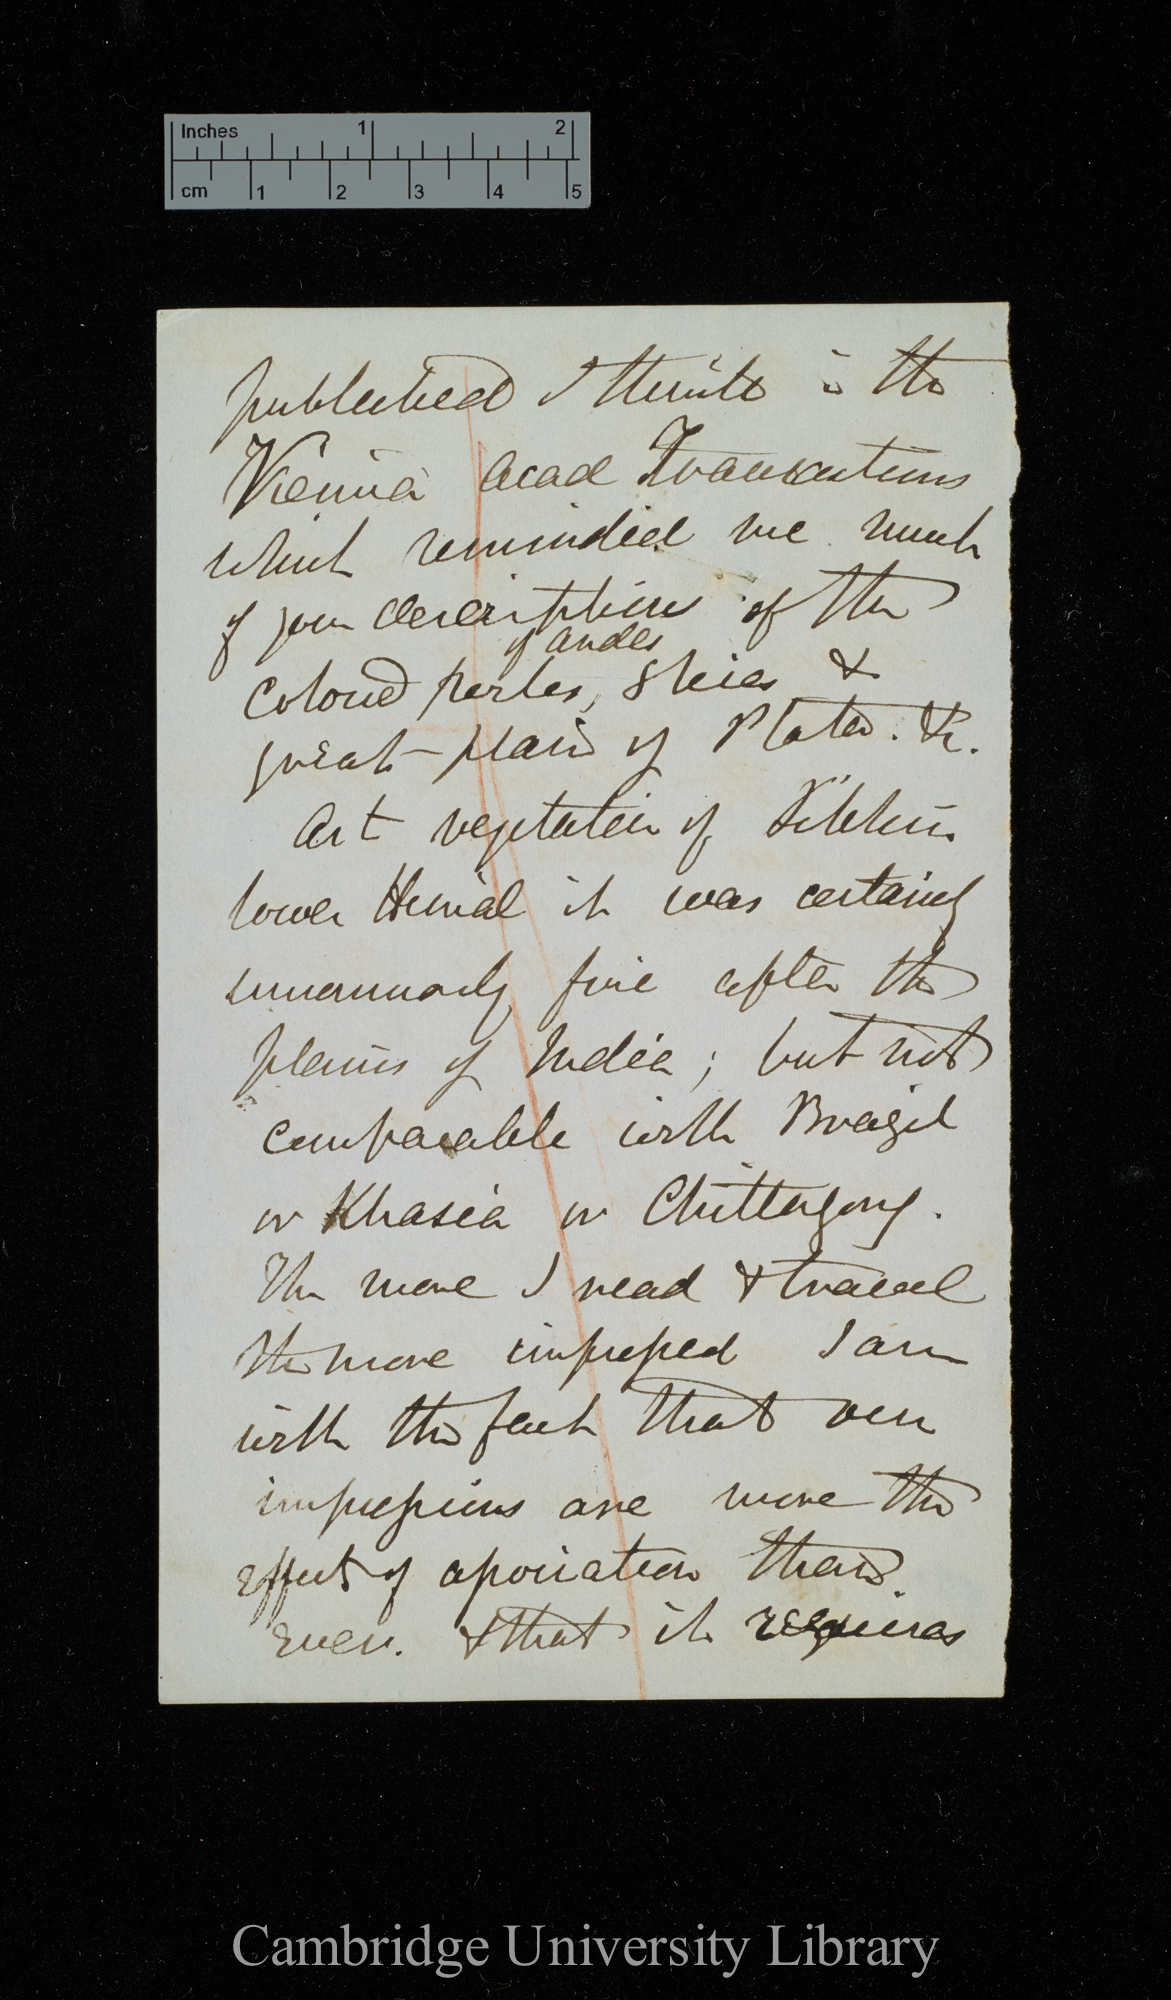 Inches 1 2
cm 1 2 3 4 5
published I think in the
Vienna Acad Transactions
which reminded me much
of your descriptions of the
colored peaks, skies &
of Andes
great plain of Plata. &c.
As t vegetation of Sikkim
lower Himal it was certainly
fine after the
plains of India; but not
comparable with Brazil
or Khasia or Chittagong.
The more I read & travel
the more impressed I am
with the fact that our
impressions are more the
effect of association than
even. & that it requires
Cambridge University Library